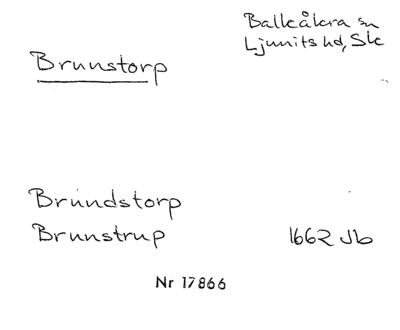 Balkåkra sn
Ljunits hd, Sk
Brunstorp
Brundstorp
Brunstrup 1662 Jb
Nr 17866